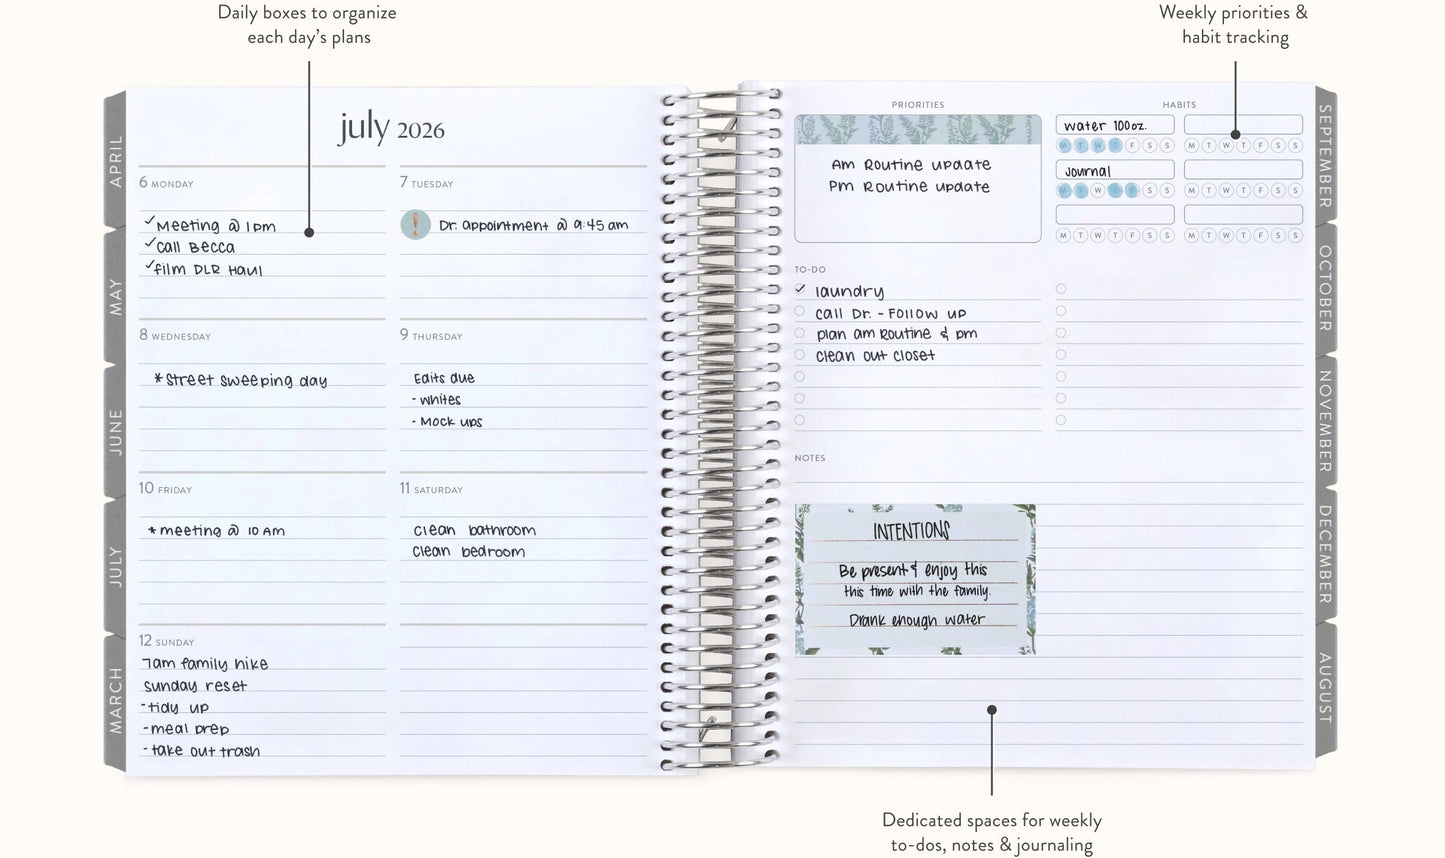 Daily boxes to organize
each day's plans
Weekly priorities &
habit tracking
APRIL
MAY
JUNE
JULY
MARCH
july 2026
6 MONDAY
✓Meeting @ 1pm
✓call Becca
✓film DLR Haul
7 TUESDAY
Dr. appointment @ 9:45 am
8 WEDNESDAY
*Street sweeping day
9 THURSDAY
Edits due
- whites
- Mock ups
10 FRIDAY
*meeting @ 10 Am
11 SATURDAY
Clean bathroom
Clean bedroom
12 SUNDAY
7am family hike
sunday reset
-tidy up
-meal prep
-take out trash
PRIORITIES
Am Routine update
Pm Routine update
HABITS
water 100oz.
M T W T F S S
M T W T F S S
Journal
M T W T F S S
M T W T F S S
M T W T F S S
M T W T F S S
TO-DO
✓ laundry
call Dr. - Follow up
plan am Routine & pm
clean out closet
NOTES
INTENTIONS
Be present & enjoy this
this time with the family.
Drank enough water
SEPTEMBER
OCTOBER
NOVEMBER
DECEMBER
AUGUST
Dedicated spaces for weekly
to-dos, notes & journaling